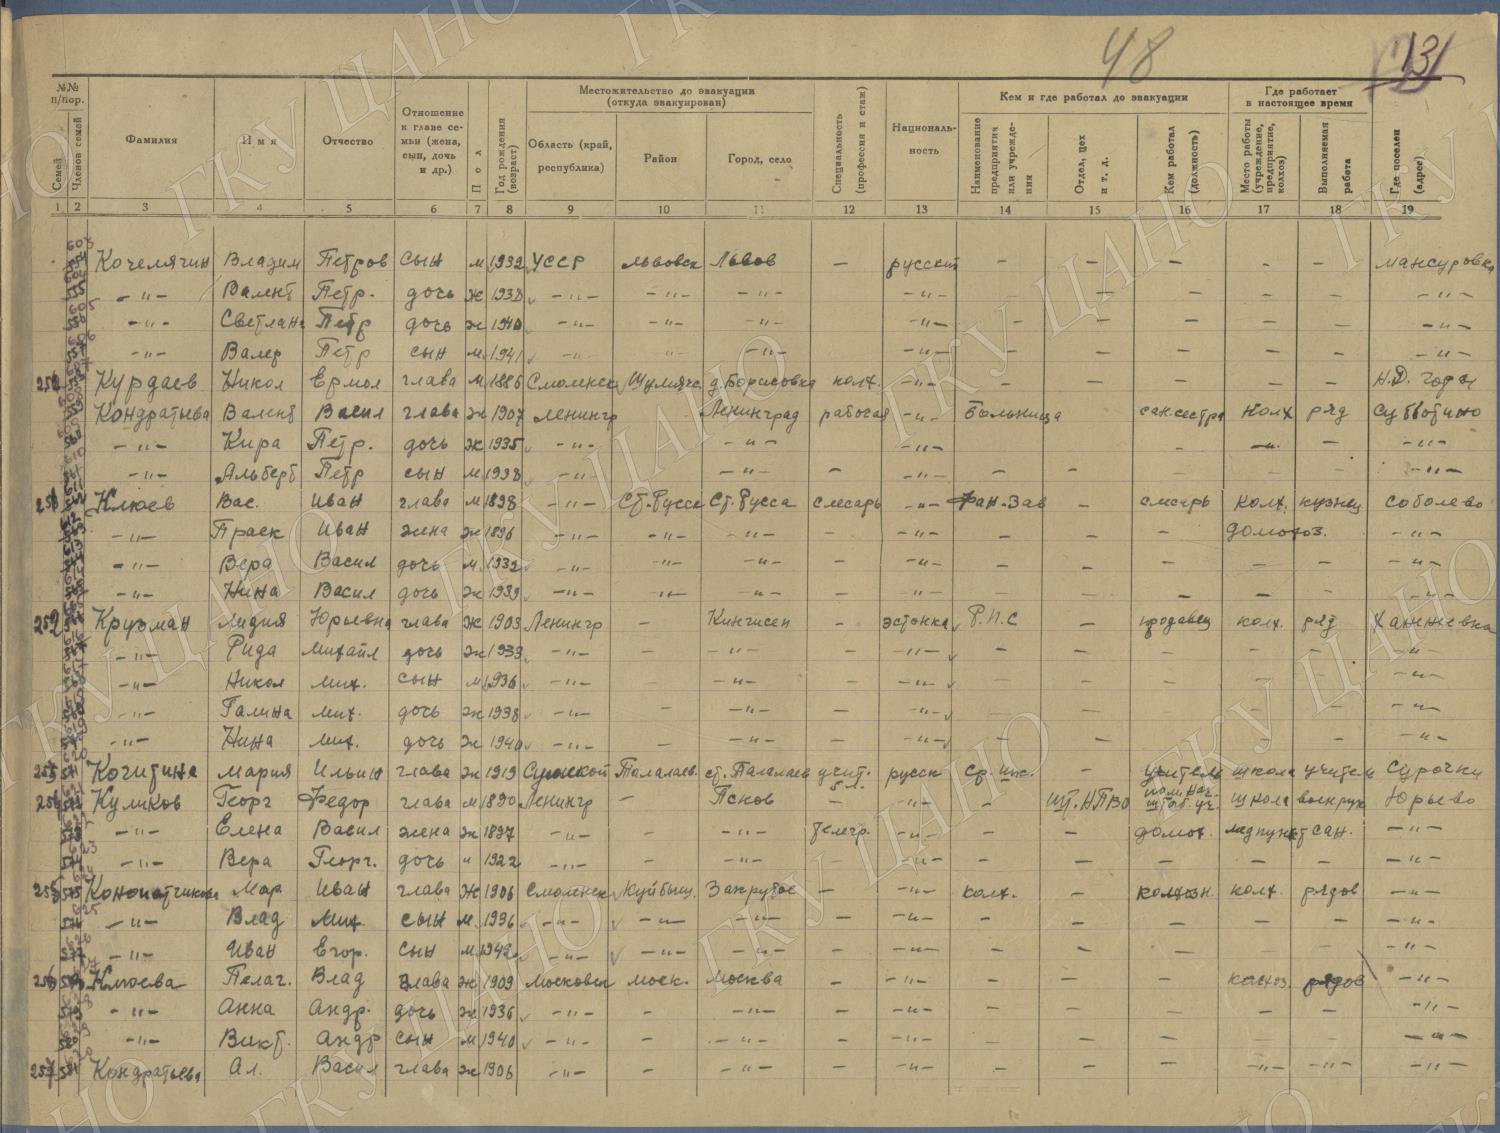 48
131
№№ п/пор.
Семей
Членов семей
Фамилия
Имя
Отчество
Отношение к главе семьи (жена, сын, дочь и др.)
Пол
Год рождения (возраст)
Местожительство до эвакуации (откуда эвакуирован)
Область (край, республика)
Район
Город, село
Специальность (профессия и стаж)
Националь-ность
Кем и где работал до эвакуации
Наименование предприятия или учреждения
Отдел, цех и т. д.
Кем работал (должность)
Где работает в настоящее время
Место работы (учреждение, предприятие, колхоз)
Выполняемая работа
Где поселен (адрес)
1 2 3 4 5 6 7 8 9 10 11 12 13 14 15 16 17 18 19
Кочелягин Владим Петров сын м 1932 УССР Львовск Львов — русский — — — — — Мансуровка
—"— Валент Петр. дочь ж 1938 —"— —"— —"— —"— — — — — — —"—
—"— Светлана Петр дочь ж 1940 —"— —"— —"— —"— — — — — — —"—
—"— Валер Петр сын м 1941 —"— —"— —"— — — — — — —"—
Курдаев Никол Ермол глава м 1886 Смоленск Шумячс д. Борисовка колх. —"— — — — — — Н.Д. Горы
Кондратьева Валент Васил глава ж 1907 Ленингр Ленинград рабочая —"— больница сан.сестра колх ряд Субботино
—"— Кира Петр. дочь ж 1935 —"— —"— —"— —"— —"—
—"— Альберт Петр сын м 1938 —"— —"— — —"— — — —"—
Клюев Вас. Иван глава м 1898 —"— Ст.Русса Ст.Русса слесарь —"— Фан.Зав — слесарь колх. кузнец Соболево
—"— Праск Иван жена ж 1896 —"— —"— —"— —"— — — — домохоз. —"—
—"— Вера Васил дочь м. 1932 —"— —"— —"— — —"— — — — — — —"—
—"— Нина Васил дочь ж 1939 —"— —"— —"— — —"— — — — — — —"—
Крузман Лидия Юрьевна глава ж 1903 Ленингр — Кингисеп — эстонка Р.П.С — продавец колх. ряд Ханжевка
—"— Рида Михайл дочь ж 1933 —"— — —"— — —"— — — — — — —"—
—"— Никол Мих. сын м 1936 —"— — —"— — —"— — — — — — —"—
—"— Галина Мих. дочь ж 1938 —"— — —"— — —"— — — — — — —"—
—"— Нина Мих. дочь ж 1940 —"— — —"— — —"— — — — — — —"—
Мария Ильин глава ж 1919 Сумской Талалаев. ст. Талалаев учит. 5 л. русск ср. шк. — учитель школа учитель Сурочки
Куликов Георг Федор глава м 1890 Ленингр — Псков — —"— — шт. НПВО школа военрук Юрьево
—"— Елена Васил жена ж 1897 —"— — —"— телегр. —"— — — домох. медпункт сан. —"—
—"— Вера Георг. дочь " 1922 —"— — —"— — —"— — — — — — —"—
255 Конопатчикова Мар Иван глава ж 1906 Смоленск Куйбыш. Закрутое — —"— колх. — колхозн. колх. рядов —"—
—"— Влад Мих. сын м. 1936 —"— —"— —"— — —"— — — — — — —"—
—"— Иван Егор. сын м 1942 —"— —"— —"— — —"— — — — —"—
256 Клюева Пелаг. Влад глава ж 1909 Московск моск. Москва — —"— — — — колхоз. рядов —"—
—"— Анна Андр. дочь ж 1936 —"— — —"— — —"— — — — — — —"—
—"— Викт. Андр сын м 1940 —"— — —"— — —"— — — — — — —"—
257 Кондратьева Ал. Васил глава ж 1906 —"— — —"— — —"— — — — —"— —"— —"—
ГКУ ЦАНО